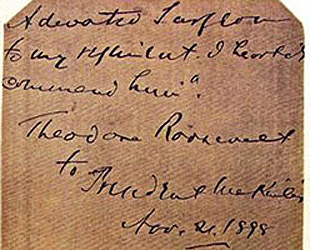 to my regiment. I heartily
commend him".
Theodore Roosevelt
to
President McKinley
Nov. 21. 1898